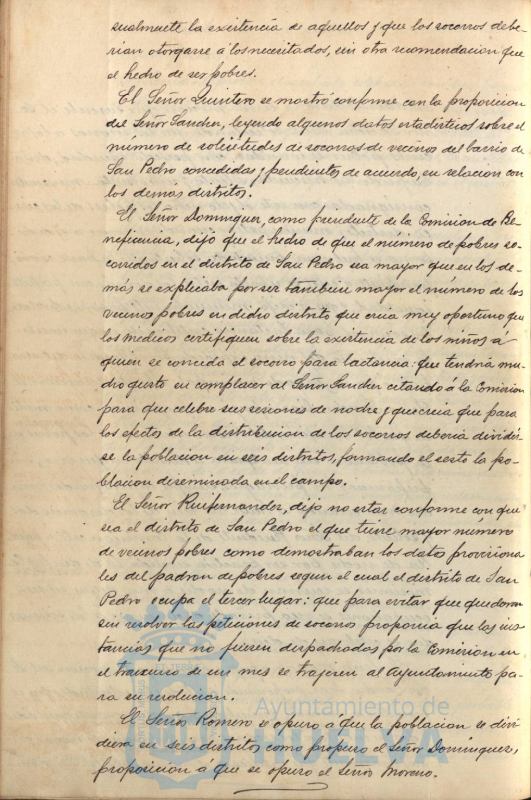 sualmente la existencia de aquellos y que los socorros debe-
rian otorgarse á los necesitados, sin otra recomendacion que
el hecho de ser pobres.
El Señor Quintero se mostró conforme con la proposicion
del Señor Sanchez, leyendo algunos datos estadisticos sobre el
número de solicitudes de socorros de vecinos del barrio de
San Pedro concedidas y pendientes de acuerdo, en relacion con
los demás distritos.
El Señor Dominguez, como presidente de la Comision de Be-
neficencia, dijo que el hecho de que el número de pobres so-
corridos en el distrito de San Pedro sea mayor que en los de-
más se explicaba por ser tambien mayor el número de los
vecinos pobres en dicho distrito que creia muy oportuno que
los medicos certifiquen sobre la existencia de los niños á
quien se conceda el socorro para lactancia: que tendria mu-
cho gusto en complacer al Señor Sanchez citando á la Comision
para que celebre sus sesiones de noche y que creia que para
los efectos de la distribucion de los socorros deberia dividir-
se la poblacion en seis distritos, formando el sesto la po-
blacion diseminada en el campo.
El Señor Ruifernandez, dijo no estar conforme con que
sea el distrito de San Pedro el que tiene mayor número
de vecinos pobres como demostraban los datos provisiona
les del padron de pobres segun el cual el distrito de San
Pedro ocupa el tercer lugar: que para evitar que quedaran
sin resolver las peticiones de socorros proponia que las ins-
tancias que no fuesen despachadas por la Comision en
el trascurso de un mes se trajeren al Ayuntamiento pa-
ra su resolucion.
El Señor Romero se opuso á que la poblacion se divi
diera en seis distritos como propuso el Señor Dominguez,
proposicion a que se opuso el Señor Moreno.
Ayuntamiento de
HUELVA